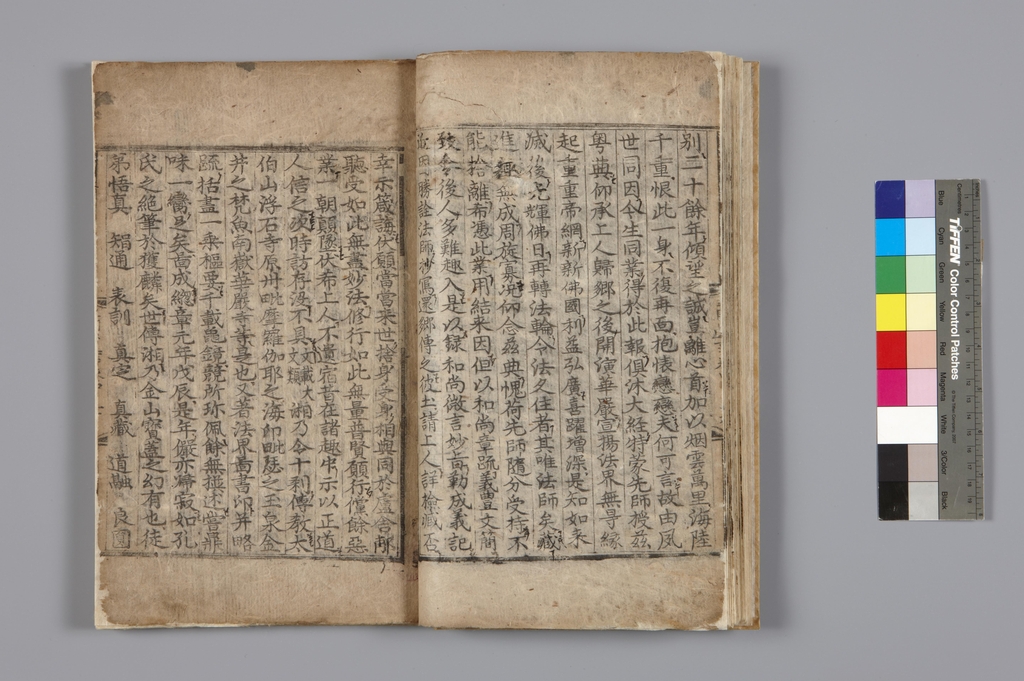 别二十餘年傾望之誠豈離心首加以烟雲萬里海陸
千重恨此一身不復再面抱懷戀戀夫何可言故由夙
世同因今生同業得於此報俱沐大經特蒙先師授玆
粤典仰承上人歸鄉之後開演華嚴宣揚法界無㝵緣
起重重帝網新新佛國利益弘廣喜躍增深是知如來
滅後光輝佛日再轉法輪令法久住者其唯法師矣藏
進趣無成周旋寡況仰念玆典愧荷先師隨分受持不
能捨離希憑此業用結来因但以和尚章疏義豊文簡
致令後人多難趣入是以録和尚微言妙旨勒成義記
近因勝詮法師抄寫還鄉傳之彼土請上人詳檢臧否
幸示箴誨伏願當當来世捨身受身相與同於盧舍那
聽受如此無盡妙法修行如此無量普賢願行儻餘惡
業一朝顚墜伏希上人不遺宿昔在諸趣中示以正道
人信之次時訪存没不具 文載大文類 湘乃令十刹傳教太
伯山浮石寺原州毗摩羅伽耶之海印毗瑟之玉泉金
井之梵魚南嶽華嚴寺等是也又著法界啚書印并略
疏括盡一乘樞要千載龜鏡競所珎佩餘無撰述嘗鼎
味一臠足矣啚成總章元年戊辰是年儼亦歸寂如孔
氏之絶筆於獲麟矣世傳湘乃金山寶蓋之幻有也徒
弟悟真 智通 表訓 真定 真藏 道融 良圓
TIFFEN Color Control Patches
Blue
Cyan
Green
Yellow
Red
Magenta
White
3/Color
Black
Centimetres